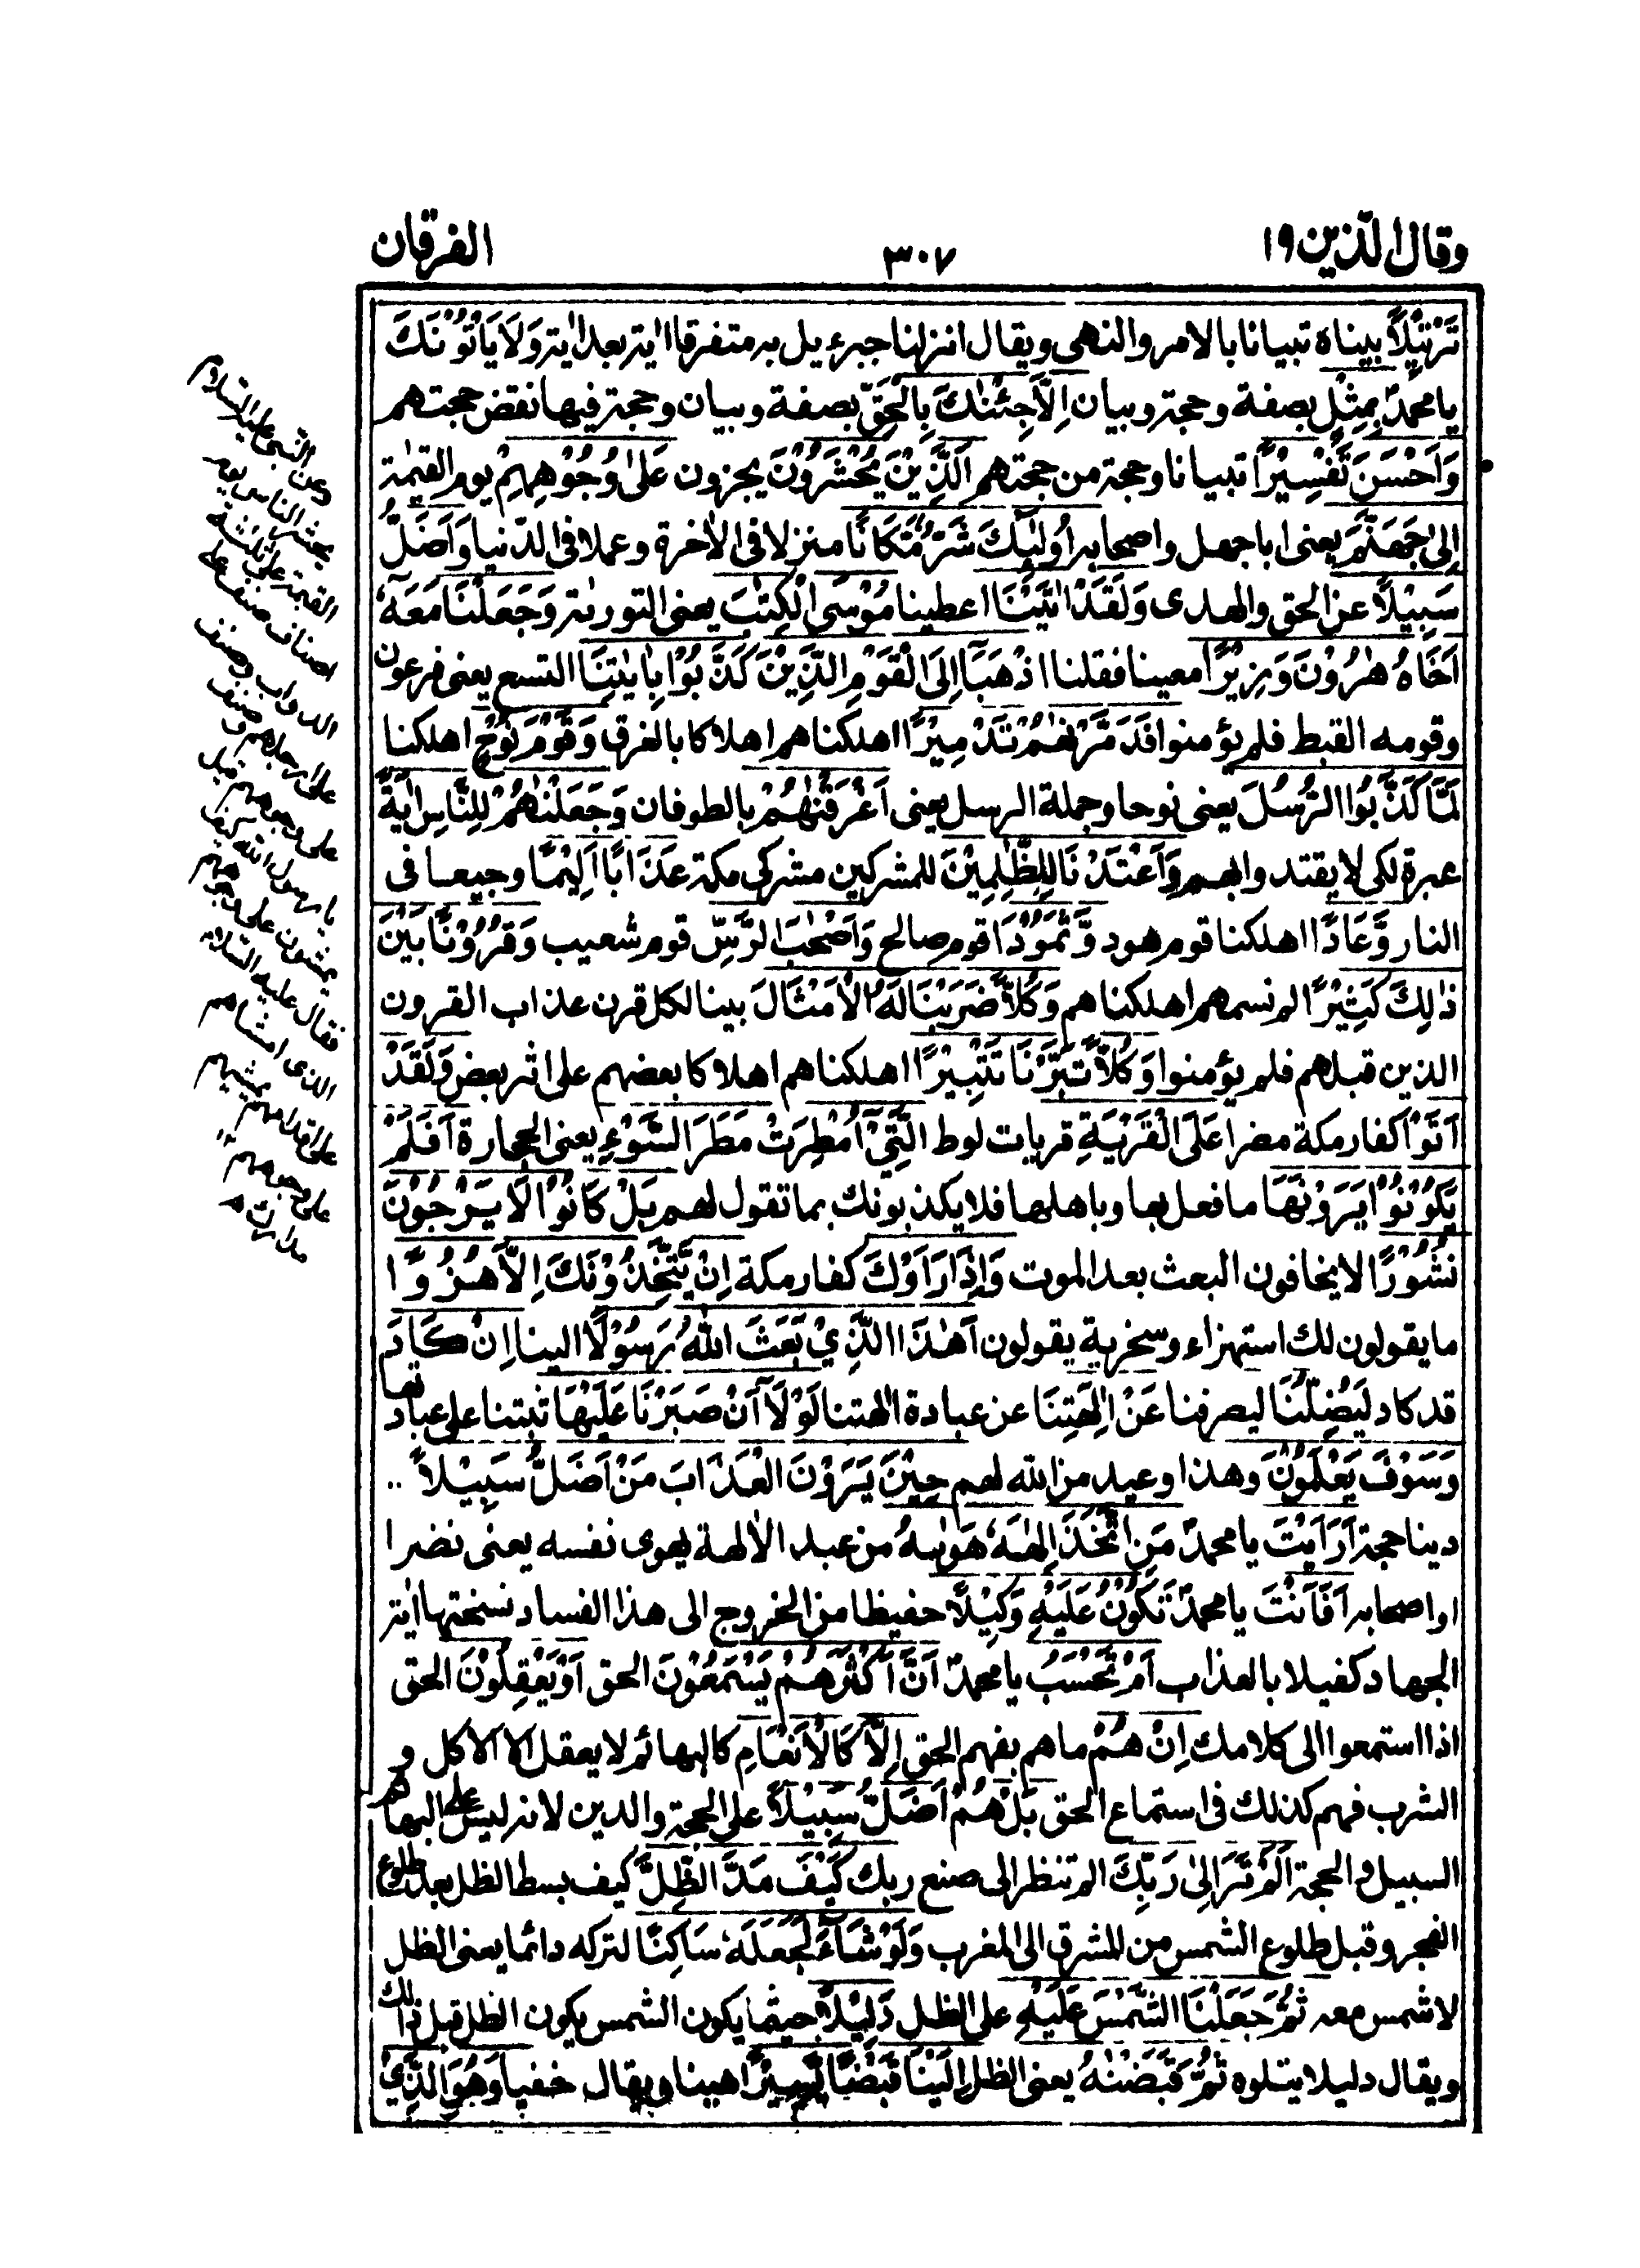 وقال الذين ١٩
٣٠٧
الفرقان
تَرْتِيْلًا بيناه تبيانا بالامر والنهى ويقال انزلنا جبرءيل به متفرقا اٰية بعد اٰية وَلَا يَأْتُوْنَكَ
يا محمدٌ بِمَثَلٍ بصفة وحجة وبيان اِلَّا جِئْنٰكَ بِالْحَقِّ بصفة وبيان وحجة فيها نقض حجتهم
وَاَحْسَنَ تَفْسِيْرًا تبيانا وحجة من حجتهم اَلَّذِيْنَ يُحْشَرُوْنَ يجزون عَلٰى وُجُوْهِهِمْ يوم القيٰمة
اِلٰى جَهَنَّمَ يعنى ابا جهل واصحابه اُولٰٓئِكَ شَرٌّ مَّكَانًا منزلا فى الاٰخرة وعملا فى الدنيا وَّاَضَلُّ
سَبِيْلًا عن الحق والهدى وَلَقَدْ اٰتَيْنَا اعطينا مُوْسَى الْكِتٰبَ يعنى التورىٰة وَجَعَلْنَا مَعَهٗٓ
اَخَاهُ هٰرُوْنَ وَزِيْرًا معينا فقلنا اذْهَبَآ اِلَى الْقَوْمِ الَّذِيْنَ كَذَّبُوْا بِاٰيٰتِنَا التسع يعنى فرعون
وقومه القبط فلم يؤمنوا فَدَمَّرْنٰهُمْ تَدْمِيْرًا اهلكناهم اهلاكا بالغرق وَقَوْمَ نُوْحٍ اهلكنا
لَمَّا كَذَّبُوا الرُّسُلَ يعنى نوحا وجملة الرسل يعنى اَغْرَقْنٰهُمْ بالطوفان وَجَعَلْنٰهُمْ لِلنَّاسِ اٰيَةً
عبرة لكى لا يقتدوا بهم وَاَعْتَدْنَا لِلظّٰلِمِيْنَ للمشركين مشركى مكة عَذَابًا اَلِيْمًا وجيعا فى
النار وَّعَادًا اهلكنا قوم هود وَّثَمُوْدَا قوم صالح وَاَصْحٰبَ الرَّسِّ قوم شعيب وَقُرُوْنًا بَيْنَ
ذٰلِكَ كَثِيْرًا لم نسمهم اهلكناهم وَكُلًّا ضَرَبْنَا لَهُ الْاَمْثَالَ بينا لكل قرن عذاب القرون
الذين قبلهم فلم يؤمنوا وَكُلًّا تَبَّرْنَا تَتْبِيْرًا اهلكناهم اهلاكا بعضهم على اثر بعض وَلَقَدْ
اَتَوْا كفار مكة مضرا عَلَى الْقَرْيَةِ قريات لوط الَّتِيْٓ اُمْطِرَتْ مَطَرَ السَّوْءِ يعنى الحجارة اَفَلَمْ
يَكُوْنُوْا يَرَوْنَهَا ما فعل بها وباهلها فلا يكذبونك بما تقول لهم بَلْ كَانُوْا لَا يَرْجُوْنَ
نُشُوْرًا لا يخافون البعث بعد الموت وَاِذَا رَاَوْكَ كفار مكة اِنْ يَّتَّخِذُوْنَكَ اِلَّا هُزُوًا
ما يقولون لك استهزاء وسخرية يقولون اَهٰذَا الَّذِيْ بَعَثَ اللّٰهُ رَسُوْلًا الينا اِنْ كَادَ
قد كاد لَيُضِلُّنَا ليصرفنا عَنْ اٰلِهَتِنَا عن عبادة اٰلهتنا لَوْلَآ اَنْ صَبَرْنَا عَلَيْهَا ثبتنا على عبادتها
وَسَوْفَ يَعْلَمُوْنَ وهذا وعيد من الله لهم حِيْنَ يَرَوْنَ الْعَذَابَ مَنْ اَضَلُّ سَبِيْلًا
دينا حجة اَرَاَيْتَ يا محمدٌ مَنِ اتَّخَذَ اِلٰهَهٗ هَوٰىهُ من عبد الاٰلهة بهوى نفسه يعنى نضرا
او اصحابه اَفَاَنْتَ يا محمدٌ تَكُوْنُ عَلَيْهِ وَكِيْلًا حفيظا من الخروج الى هذا الفساد نسختها اٰية
الجهاد كفيلا بالعذاب اَمْ تَحْسَبُ يا محمدٌ اَنَّ اَكْثَرَهُمْ يَسْمَعُوْنَ الحق اَوْ يَعْقِلُوْنَ الحق
اذا استمعوا الى كلامك اِنْ هُمْ ما هم بفهم الحق اِلَّا كَالْاَنْعَامِ كالبهائم لا يعقل الا الاكل و
الشرب فهم كذلك فى استماع الحق بَلْ هُمْ اَضَلُّ سَبِيْلًا على الحجة والدين لانه ليس على البهائم
السبيل والحجة اَلَمْ تَرَ اِلٰى رَبِّكَ الم تنظر الى صنع ربك كَيْفَ مَدَّ الظِّلَّ كيف بسط الظل بعد طلوع
الفجر وقبل طلوع الشمس من المشرق الى المغرب وَلَوْ شَآءَ لَجَعَلَهٗ سَاكِنًا لتركه دائما يعنى الظل
لا شمس معه ثُمَّ جَعَلْنَا الشَّمْسَ عَلَيْهِ على الظل دَلِيْلًا حيثما يكون الشمس يكون الظل قبل ذالك
ويقال دليلا يتلوه ثُمَّ قَبَضْنٰهُ يعنى الظل اِلَيْنَا قَبْضًا يَّسِيْرًا هينا ويقال خفيا وَهُوَ الَّذِيْ
وعن النبى عليه السلام
يحشر الناس يوم
القيمة على ثلثة
اصناف صنف على
الدواب وصنف
على ارجلهم وصنف
على وجوههم قيل
يا رسول الله كيف
يمشون على وجوههم
فقال عليه السلام
الذى امشاهم
على اقدامهم يمشيهم
على وجوههم ١٢
مدارك